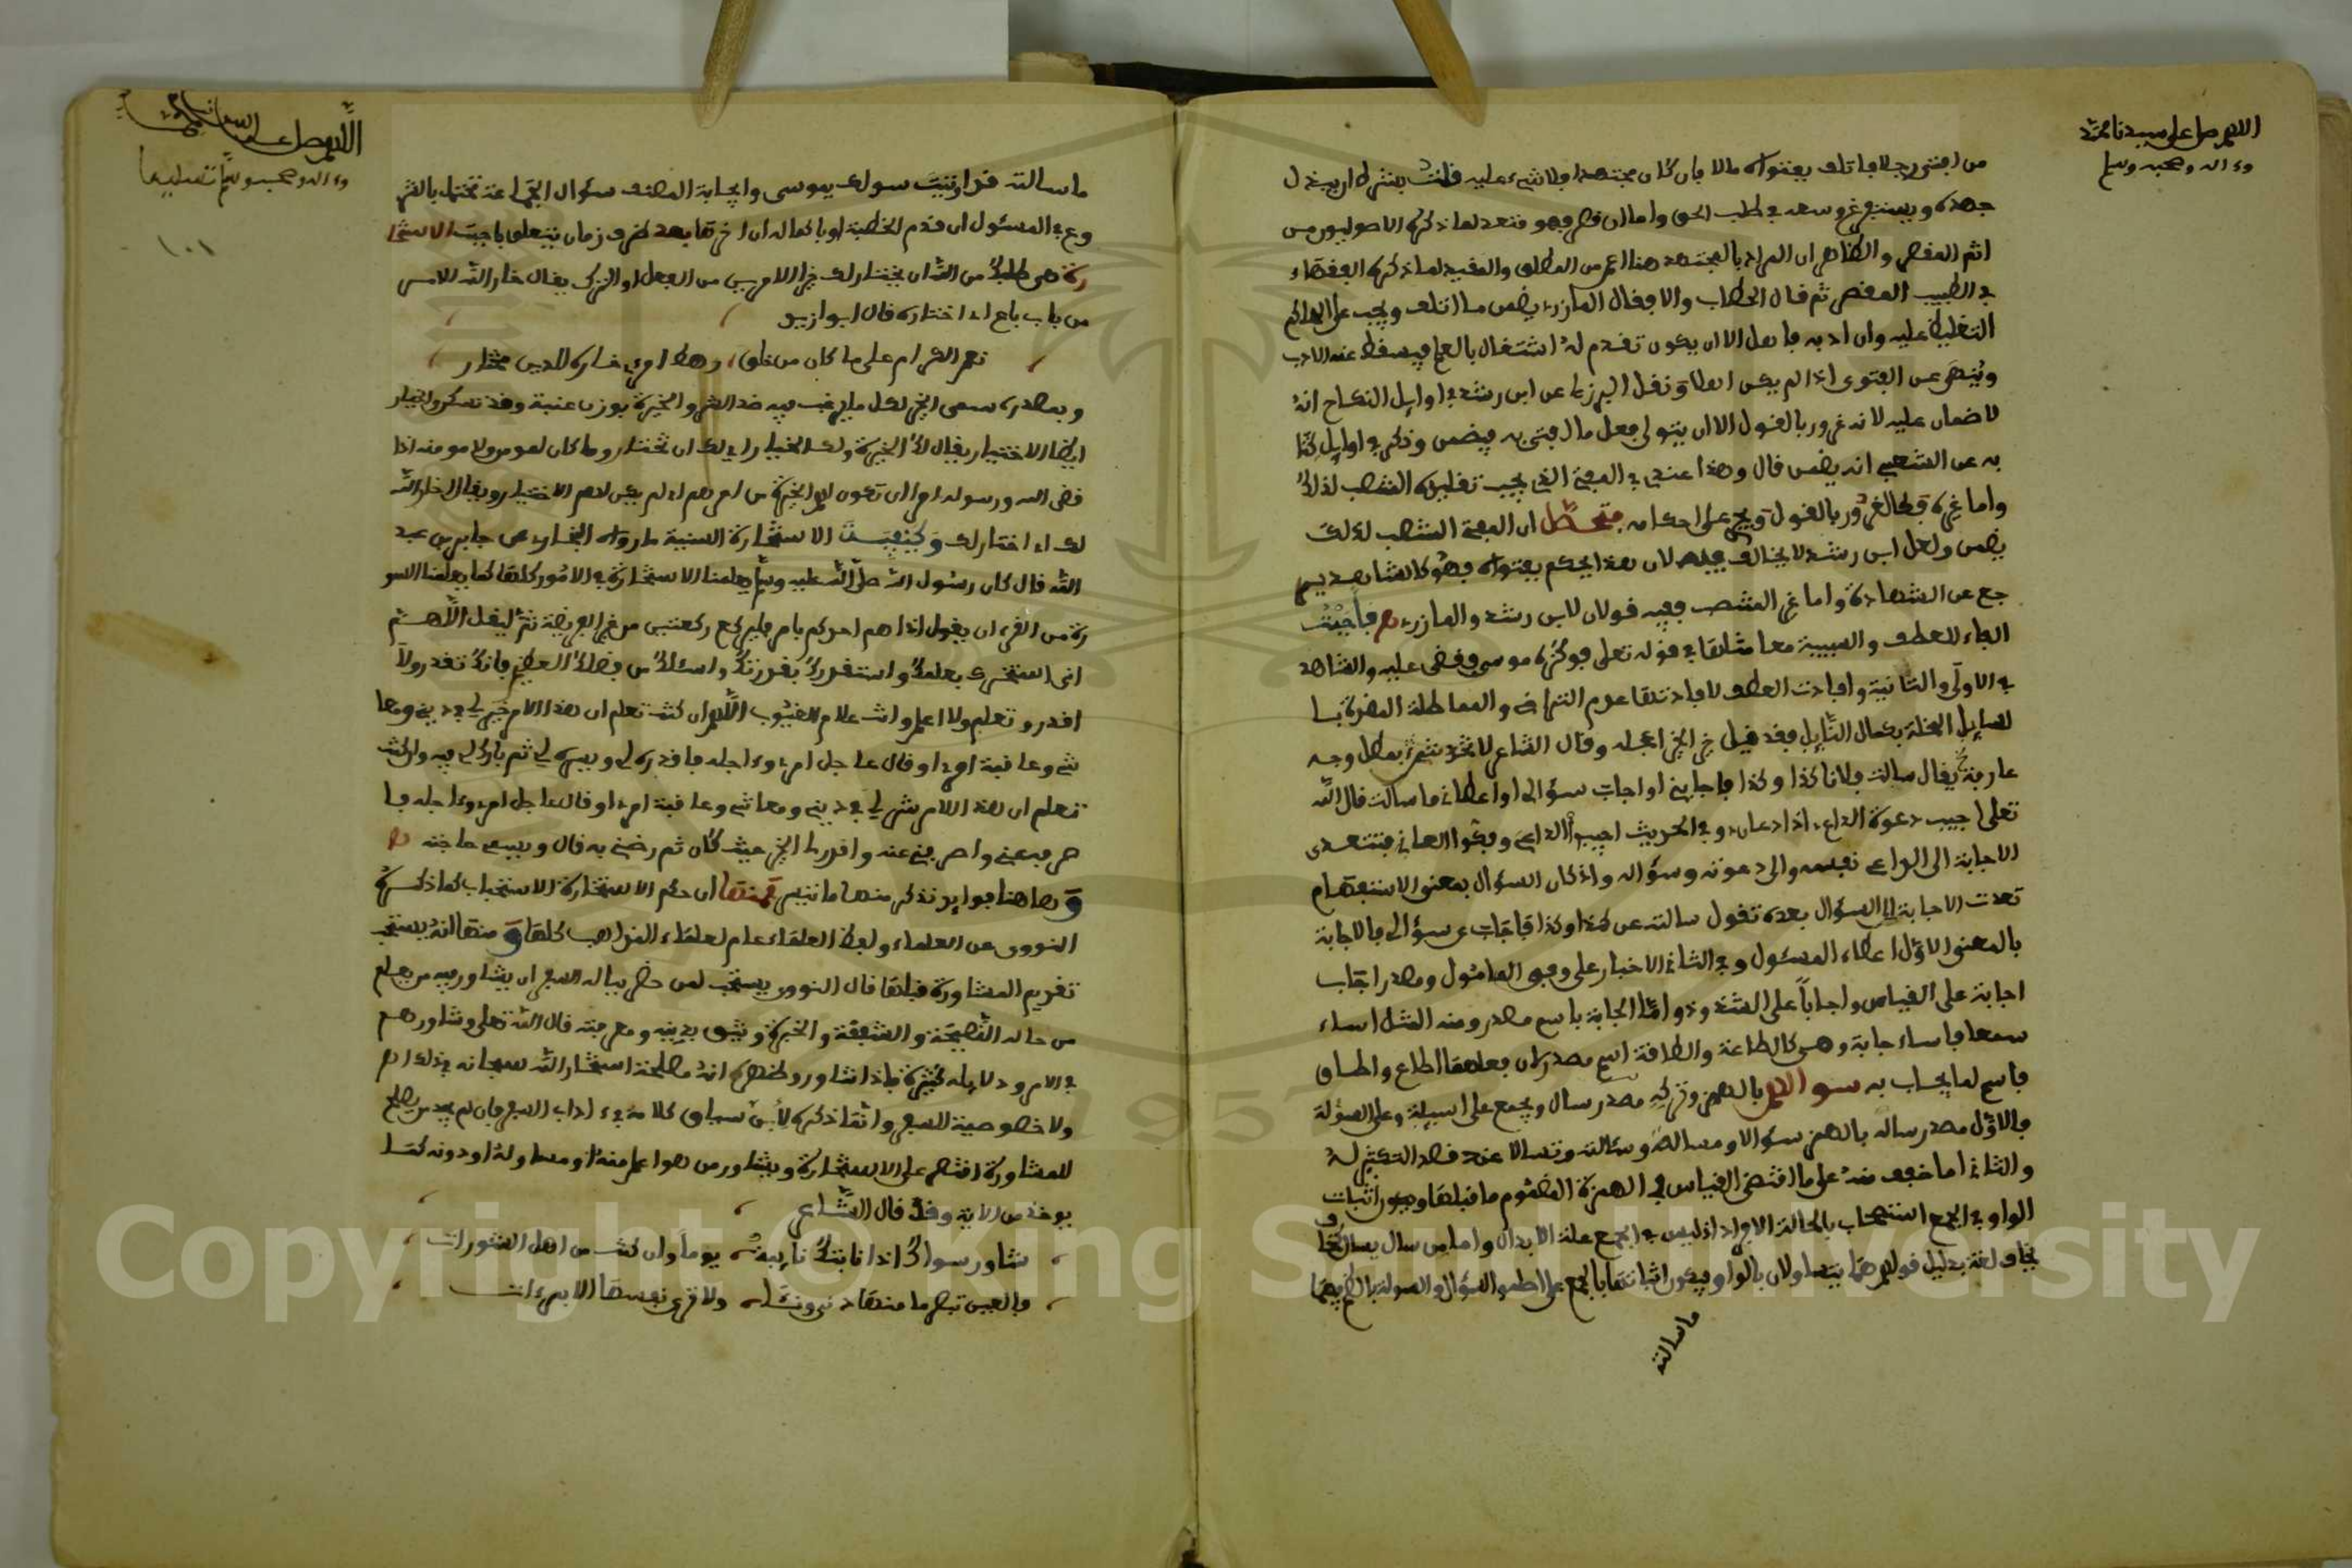 اللهم صل على سيدنا محمد
وءاله وصحبه وسلم
من افتى رجلا فاتلف بفتواه مالا فان كان مجتهدا فلا شيء عليه قلت بشرط ان يبذل
جهده ويستفرغ وسعه في طلب الحق واما ان قصر فهو متعد لما ذكره الاصوليون من
اثم المقصر والظاهر ان المراد بالمجتهد هنا اعم من المطلق والمقيد لما ذكره الفقهاء
في الطبيب المقصر ثم قال الحطاب والا فقال المازري يضمن ما اتلف ويجب على الحاكم
التغليظ عليه وان ادبه فاهل الا ان يكون تقدم له اشتغال بالعلم فيسقط عنه الادب
وينهى عن الفتوى اذا لم يكن اهلا ونقل البرزلي عن ابن رشد في اوايل النكاح انه
لا ضمان عليه لانه غرور بالقول الا ان يتولى فعل ما افتى به فيضمن وذكر في اوايل
به عن الشعبي انه يضمن قال وهذا عندي في المفتي الذي يجب تقليده المنتصب لذلك
واما غيره فكالغرور بالقول ويجري على احكامه فتحصل ان المفتي المنتصب لذلك
يضمن ولعل ابن رشد لا يخالف فيه لان هذا يحكم بفتواه فهو كالشاهد ير
جع عن الشهادة واما غير المنتصب ففيه قولان لابن رشد والمازري ص فاجبت
الفاء للعطف والسببية معا مثلها في قوله تعلى فوكزه موسى فقضى عليه والشاهد
في الاولى والثانية وافادت العطف لافادتها عدم التراخي والمماطلة المضرة با
لسايل المخلة بكمال النايل فقد قيل خير الخير اعجله وقال الشاعر
عارفة يقال سالت فلانا كذا وكذا فاجابني او اجاب سؤالي او اعطاني ما سالت قال الله
تعلى اجيب دعوة الداع اذا دعان وفي الحديث اجيبوا الداعي وفكوا العاني فتتعدى
الاجابة الى الداعي نفسه والى دعوته وسؤاله واذا كان السؤال بمعنى الاستفهام
تعدت الاجابة الى السؤال بعده تقول سالته عن كذا وكذا فاجاب عن سؤالي فالاجابة
بالمعنى الاول اعطاء المسئول وفي الثاني الاخبار على وفق المامول ومصدر اجاب
اجابة على القياس واجابا على الشذوذ واما الجابة باسم مصدر ومنه المثل اساء
سمعا فاساء جابة وهي كالطاعة والطاقة اسم مصدر لان فعلهما اطاع واطاق
فاسم لما يجاب به سوالهم بالهمز وتركه مصدر سال ويجمع على اسيلة وعلى السؤلة
فالاول مصدر ساله بالهمز سؤالا ومسالة وسئالة وتسالا عند قصد التكثير له
والثاني اما خفف منه على ما اقتضى القياس في الهمزة المضموم ما قبلها ويجوز اثبات
الواو في الجمع استصحاب بالحالة الافراد اذ ليس في الجمع علة الابدال واما من سال يسال كخا
يخاف لغة بدليل قولهم هما يتساولان بالواو فيكون اثباتها بالجمع على اصله والسؤال والسولة بالضم فيهما
ماسالته
اللهم صل على
وءاله وصحبه وسلم تسليما
١٠١
ماسالته قد اوتيت سولك يموسى واجابة المصنف سؤال الجماعة تحتمل بالشر
وع في المسئول ان قدم الخطبة او باكماله ان اخرها بعد ظرف زمان يتعلق باجبت الاستخا
رة هي طلبك من الله ان يختار لك خير الامرين من الفعل او الترك يقال خار الله للامر
من باب باع اي اختاره قال ابو ازيد
نعم الكرام على ما كان من خلق رهط امري خاره للدين مختار
وبمصدره سمى الخير لكل ما يرغب فيه ضد الشر والخيرة بوزن عنبة وقد تسكر والخيار
ايضا الاختيار يقال لك الخيرة ولك الخيار اي لك ان تختار وما كان لمومن ولا مومنة اذا
قضى الله ورسوله امرا ان تكون لهم الخيرة من امرهم اي لم يكن لهم الاختيار ويقال خار الله
لك اي اختار لك وكيفية الاستخارة السنية ما رواه البخاري عن جابر بن عبد
الله قال كان رسول الله صلى الله عليه وسلم يعلمنا الاستخارة في الامور كلها كما يعلمنا السو
رة من القرءان يقول اذا هم احدكم بامر فليركع ركعتين من غير الفريضة ثم ليقل اللهم
اني استخيرك بعلمك واستقدرك بقدرتك واسئلك من فضلك العظيم فانك تقدر ولا
اقدر وتعلم ولا اعلم وانت علام الغيوب اللهم ان كنت تعلم ان هذا الامر خير لي في ديني ومعا
شي وعاقبة امري او قال عاجل امري وءاجله فاقدره لي ويسره لي ثم بارك لي فيه وان كنت
تعلم ان هذا الامر شر لي في ديني ومعاشي وعاقبة امري او قال عاجل امري وءاجله فا
صرفه عني واصرفني عنه واقدر لي الخير حيث كان ثم رضني به قال ويسمي حاجته
وهاهنا فوايد نذكر منها ما تيسر فمنها ان حكم الاستخارة الاستحباب كما ذكره
النووي عن العلماء ولفظ العلماء عام لعلماء المذاهب كلها ومنها انه يستحب
تقديم المشاورة قبلها قال النووي يستحب لمن خطر بباله السفر ان يشاور فيه من يعلم
من حاله النصيحة والشفقة والخبرة ويثق بدينه ومعرفته قال الله تعلى وشاورهم
في الامر ودلايله كثيرة فاذا شاور وظهر انه مصلحة استخار الله سبحانه في ذلك اه
ولا خصوصية للسفر وانما ذكره لان سياق كلامه في ءاداب السفر فان لم يجد من يصلح
للمشاورة اقتصر على الاستخارة ويشاور من هو اعلم منه او مساو له او دونه كما
يوخذ من الاية وقد قال الشاعر
شاور سواك اذا نابتك نايبة يوما وان كنت من اهل المشورات
فالعين تبصر ما منها دنى ونئا ولا ترى نفسها الا بمرءات